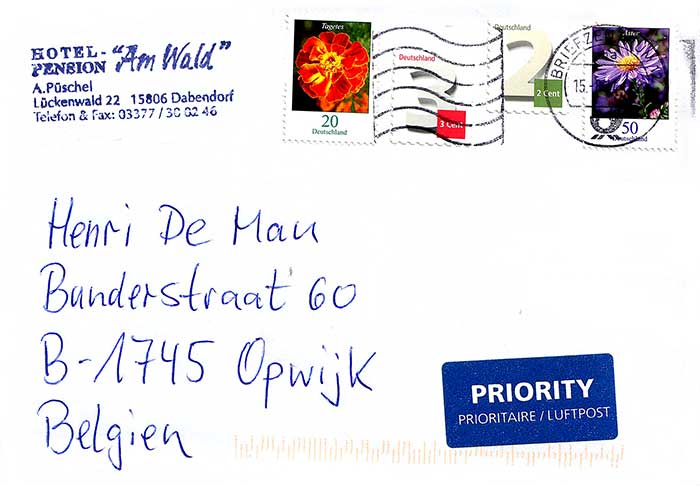 HOTEL- "Am Wald"
PENSION
A.Püschel
Lückenwald 22 15806 Dabendorf
Telefon & Fax: 03377 / 30 02 46
Tagetes
20
Deutschland
Deutschland
3 Cent
Deutschland
2
2 Cent
BRIEFZ
15.
Aster
50
Deutschland
Henri De Man
Banderstraat 60
B-1745 Opwijk
Belgien
PRIORITY
PRIORITAIRE / LUFTPOST